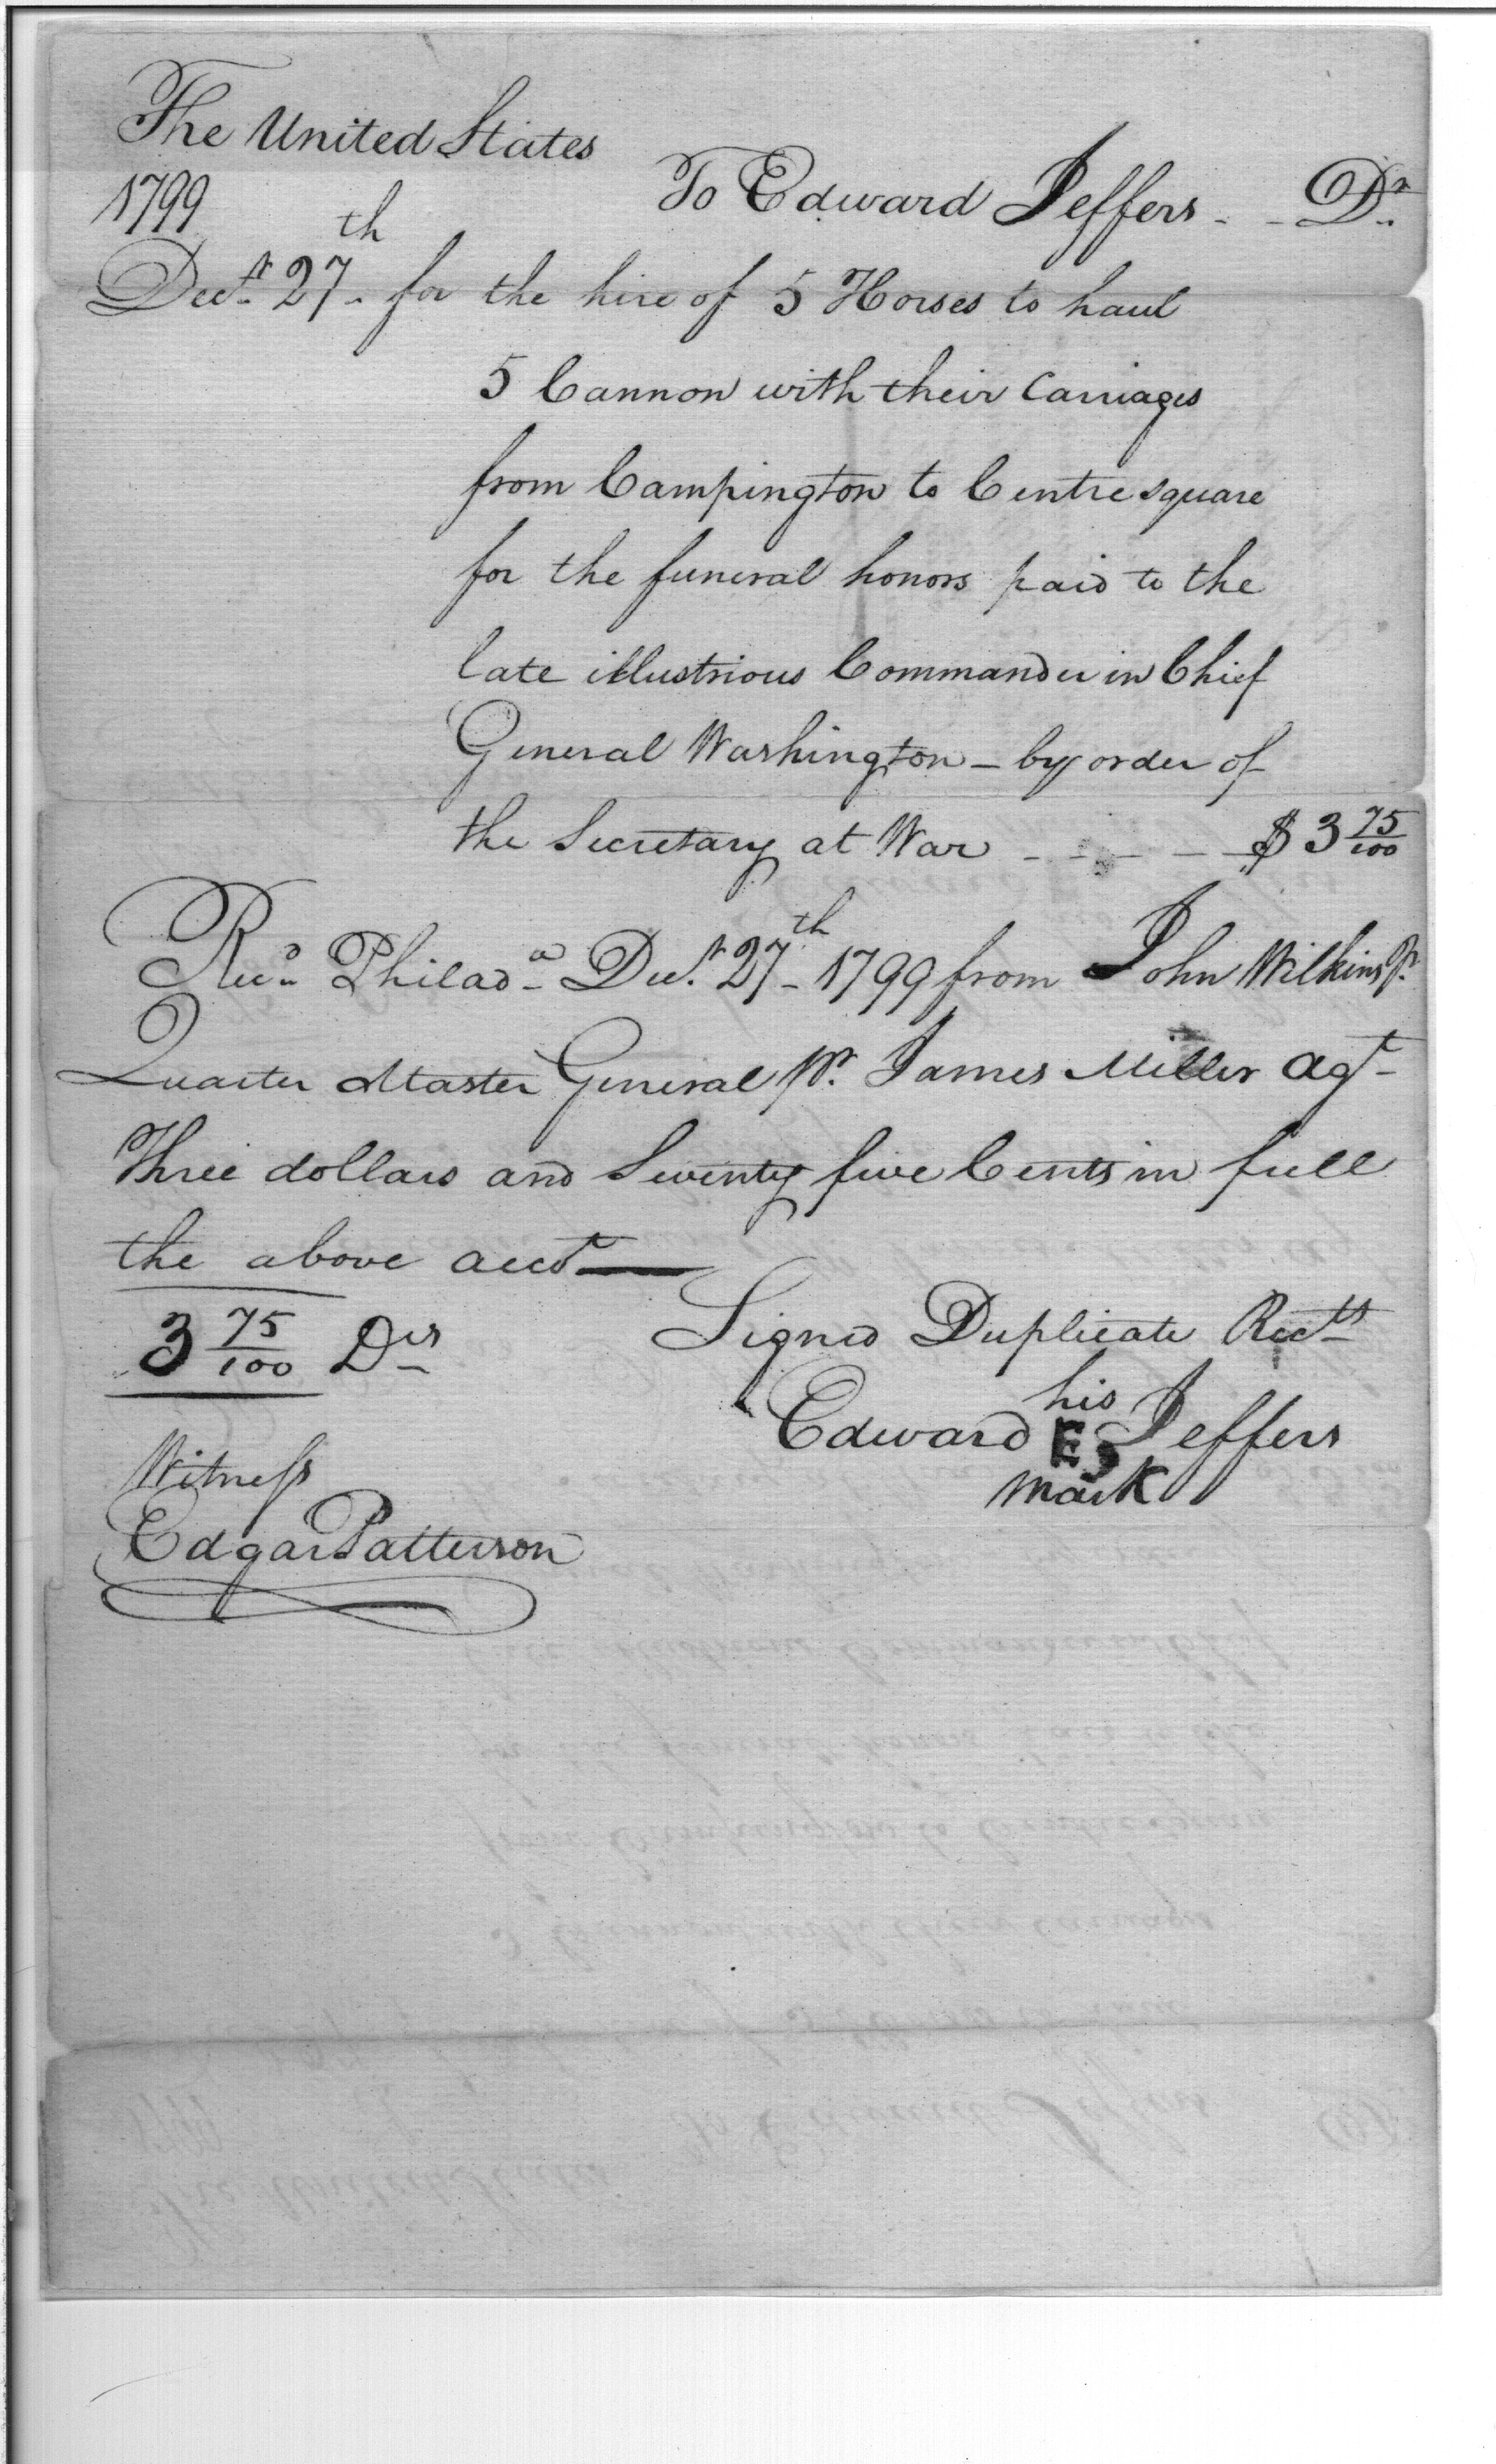 The United States
To Edward Jeffers - - Dr.
1799
Decr. 27th. for the hire of 5 Horses to haul
5 Cannon with their Carriages
from Campington to Centre square
for the funeral honors paid to the
late illustrious Commander in Chief
General Washington - by order of
the Secretary at War - - - - - $ 3 75/100
Recd. Philada. Decr. 27th 1799 from John Wilkins Jr.
Quarter Master General pr. James Miller Agt
Three dollars and Seventy five Cents in full
the above acct
3 75/100 Drs
Signed Duplicate Rects
his
Edward EJ Jeffers
mark
Witness
Edgar Patterson